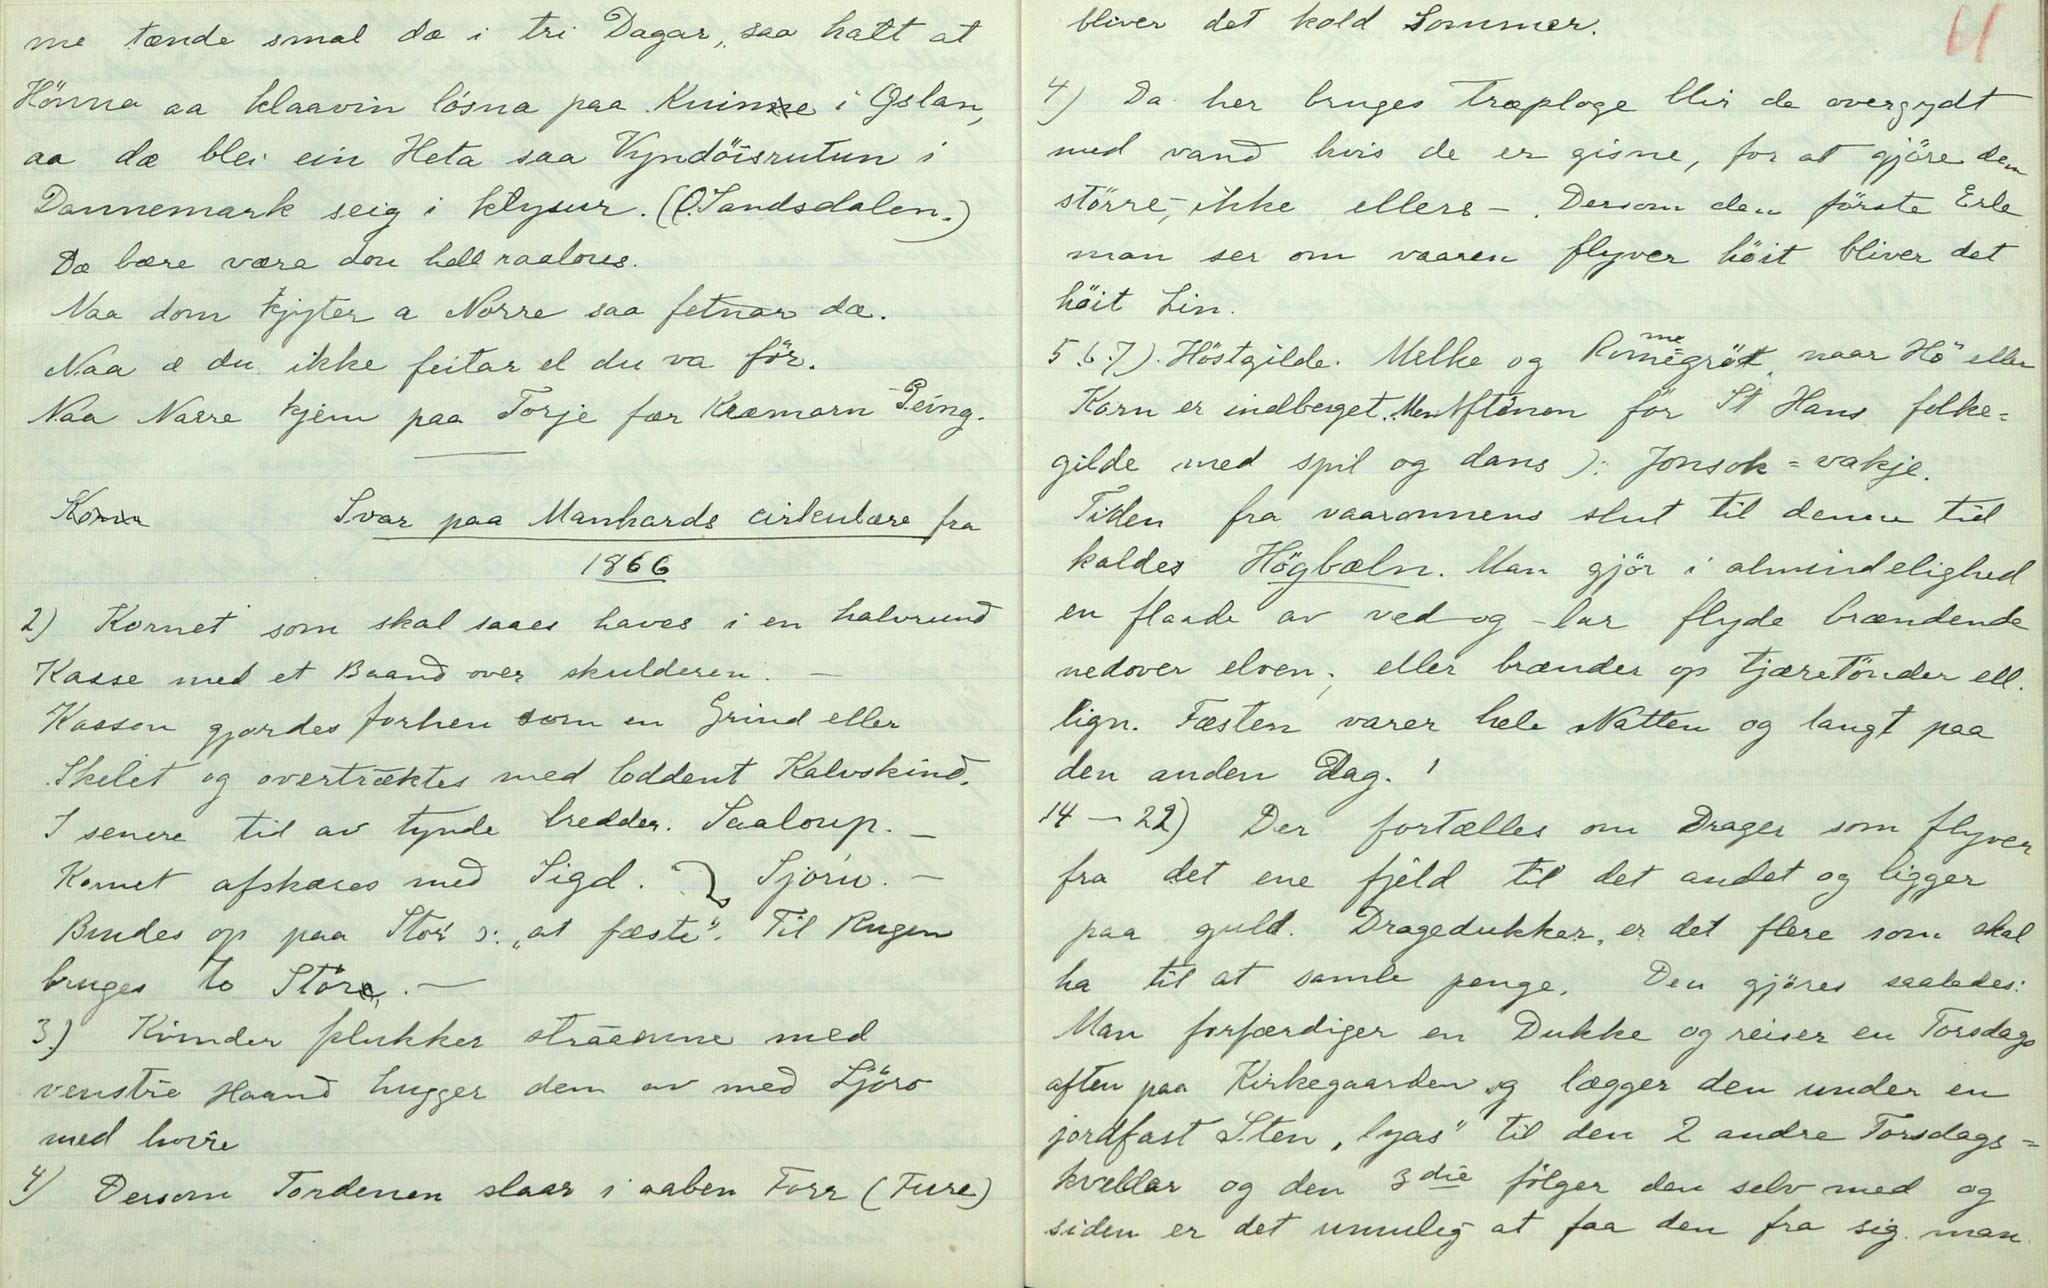 me tænde smal dæ i tri Dagar, saa hatt at
Hönna aa klaavin lösna paa Kuinne i Oslan,
aa dæ blei ein Heta saa Vyndöisrutun i
Dannemark seig i klysur. (O. Sandsdalen.)
Dæ bære være dou hell raalous.
Naa dom kjyter a Norre saa fetnar dæ.
Naa æ du ikke feitar el du va för.
Naa Narre kjem paa Torje fær Kræmarn Peing.
Svar paa Manhards cirkulære fra
1866
2) Kornet som skal saaes haves i en halvrund
Kasse med et Baand over skulderen. —
Kassen gjordes forhen som en Grind eller
Skelet og overtræktes med loddent Kalvskind.
I senere tid av tynde bredder. Saaloup. —
Kornet afskæres med Sigd. Sjöru. —
Bindes op paa Stör ɔ: „at fæste". Til Rugen
bruges to Störe. —
3.) Kvinder plukker straaenne med
venstre Haand hugger dem av med Sjöro
med horre
4) Dersom Tordenen slaar i aaben Forr (Fure)
bliver det kold Sommer.
61
4) Da her bruges træploge blir de overgydt
med vand hvis de er gisne, for at gjöre dem
större, ikke ellers —. Dersom den förste Erle
man ser om vaaren flyver höit bliver det
höit Lin.
5.6.7). Höstgilde. Melke og Rømmegröt, naar Hö eller
Korn er indberget. Men Aftenen för St Hans folke=
gilde med spil og dans ɔ: Jonsok=vakje.
Tiden fra vaaronnens slut til denne tid
kaldes Högbæln. Man gjör i almindelighed
en flaade av ved og lar flyde brændende
nedover elven; eller brænder op tjæretönder ell.
lign. Fæsten varer hele Natten og langt paa
den anden Dag.
14 — 22) Der fortælles om Drager som flyver
fra det ene fjeld til det andet og ligger
paa guld. Dragedukker, er det flere som skal
ha til at samle penge. Den gjöres saaledes:
Man forfærdiger en Dukke og reiser en Torsdags
aften paa Kirkegaarden og lægger den under en
jordfast Sten, „lyas" til den 2 andre Torsdags=
kvellar og den 3die fölger den selv med og
siden er det umulig at faa den fra sig. man